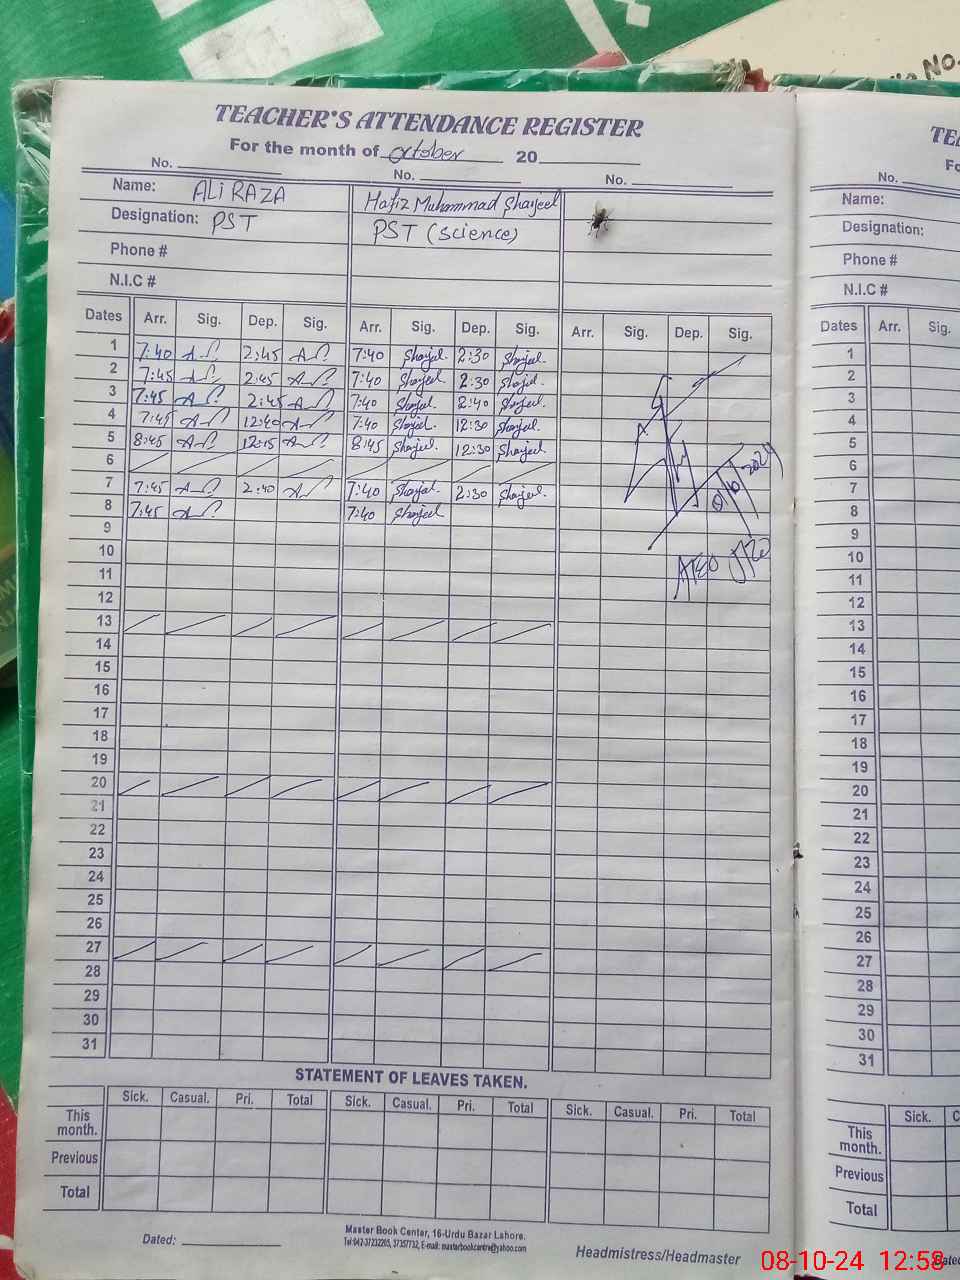 No.
TEACHER'S ATTENDANCE REGISTER
For the month of October 20
No. No. No.
Name: ALi RAZA Hafiz Muhammad Sharjeel
Designation: PST PST (Science)
Phone #
N.I.C #
Dates Arr. Sig. Dep. Sig. Arr. Sig. Dep. Sig. Arr. Sig. Dep. Sig.
1 7:40 2:45 7:40 Sharjeel. 2:30 Sharjeel.
2 7:45 2:45 7:40 Sharjeel. 2:30 Sharjeel.
3 7:45 2:45 7:40 Sharjeel. 2:40 Sharjeel.
4 7:45 12:40 7:40 Sharjeel. 12:30 Sharjeel.
5 8:45 12:15 8:45 Sharjeel. 12:30 Sharjeel.
6
7 7:45 2:40 7:40 Sharjeel. 2:30 Sharjeel.
8 7:45 7:40 Sharjeel
9
10
11
12
13
14
15
16
17
18
19
20
21
22
23
24
25
26
27
28
29
30
31
STATEMENT OF LEAVES TAKEN.
Sick. Casual. Pri. Total Sick. Casual. Pri. Total Sick. Casual. Pri. Total
This month.
Previous
Total
Dated:
Master Book Center, 16-Urdu Bazar Lahore.
Tel:042-37232205, 37357732, E-mail: masterbookcentre@yahoo.com
Headmistress/Headmaster
No.
Name:
Designation:
Phone #
N.I.C #
Dates Arr. Sig.
1
2
3
4
5
6
7
8
9
10
11
12
13
14
15
16
17
18
19
20
21
22
23
24
25
26
27
28
29
30
31
Sick.
This month.
Previous
Total
08-10-24 12:58